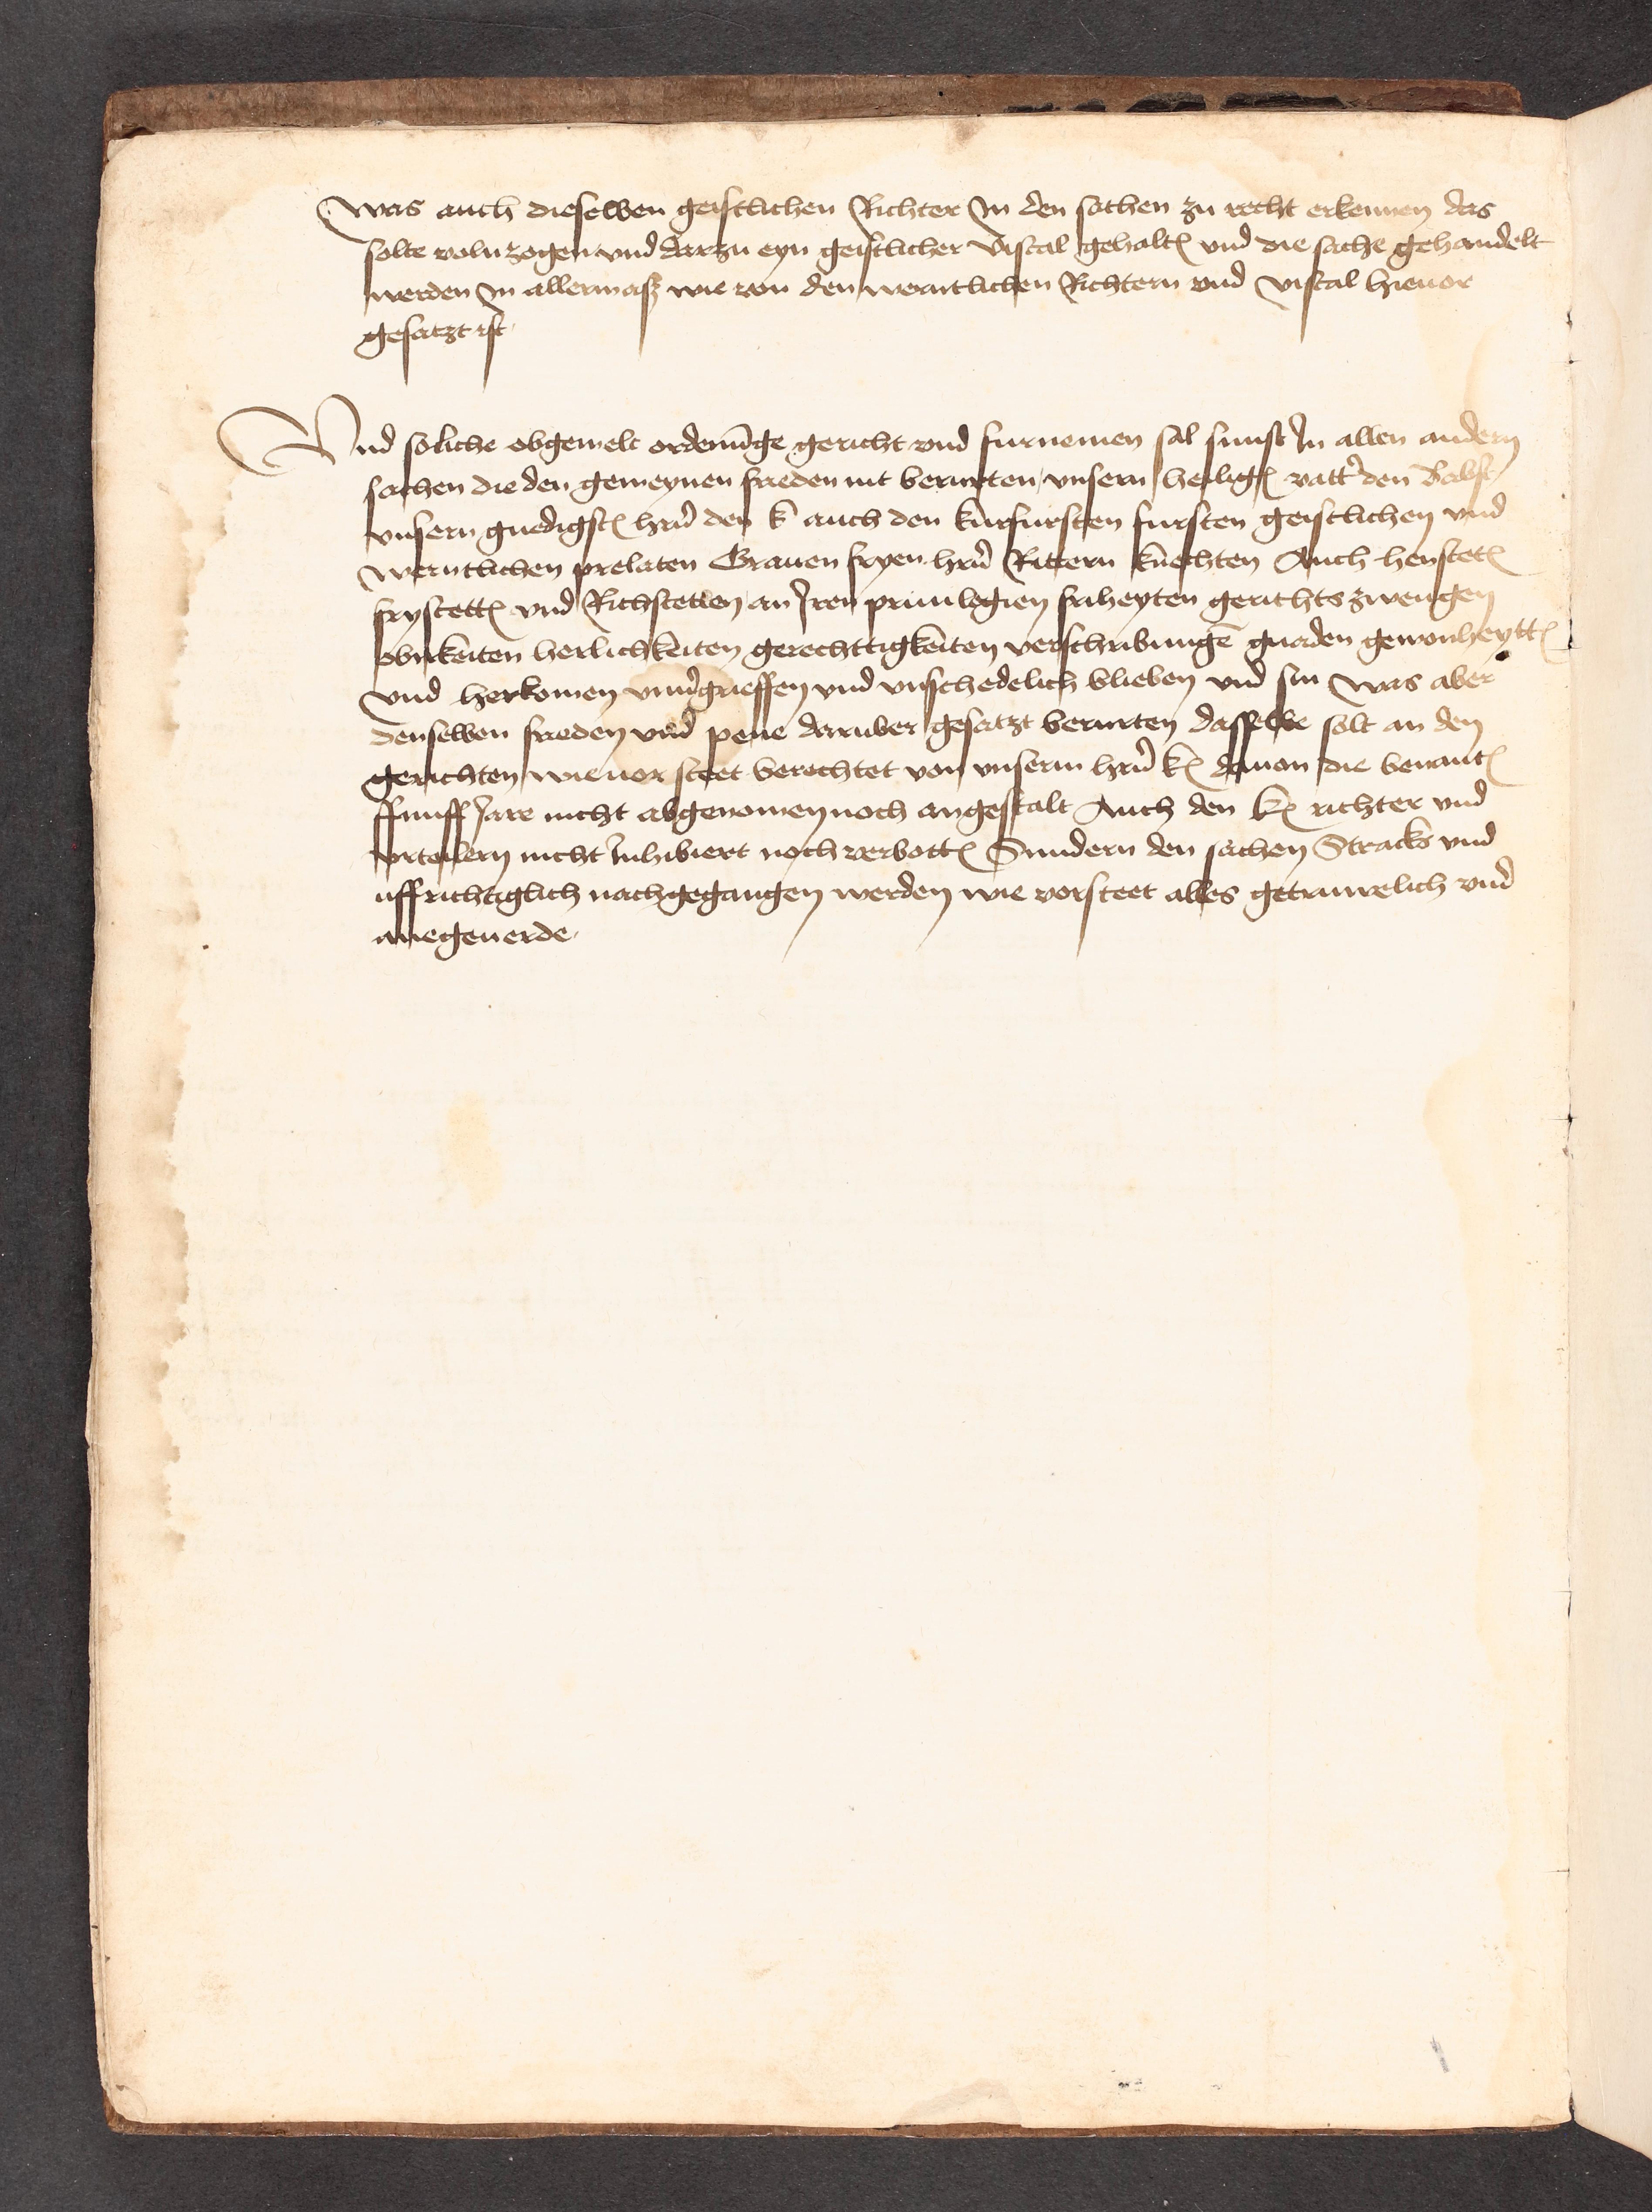 Was auch dieselben geistlichen Richter In den sachen zu recht erkennen das
solte voln zogen vnd darzu eyn geistlicher viscal gehaltē vnd die sache gehandelt
werden In allermaß wie von den werntlichen Richtern vnd viscal hieuor
gesatzt ist
Vnd soliche obgemelt ordenūge gericht vnd furnemen sal sunst In allen andern
sachen die den gemeynen frieden nit berurten vnsern heiligē vatt' den Babst
vnsern gnedigstē hrn̄ den k auch den kurfursten fursten geistlichen vnd
werntlichen prelaten Grauen fryen hrn̄ Rittern knechten Auch henstetē
frystettē vnd Richstetten an Iren priuilegien friheyten gerichts zwengen
obirkeiten herlichkeiten gerechttigkeiten verschribungē gnaden gewonheyttē
vnd herkomen vnu'griffen vnd vnschedelich blieben vnd sin Was aber
denselben frieden vnd pene daruber gesatzt berurten dasselbe solt an den
gerichten wieuor steet berechtet von vnserm hrn̄ kē dauon die benantē
ffunff Jare nicht abgenomen noch angestalt Auch den kē richter vnd
vrteilern nicht Inhibiert noch verbottē Sundern den sachen Stracks vnd
uffrichtiglich nachgegangen werden wie vorsteet alles getruwelich vnd
anegeuerde